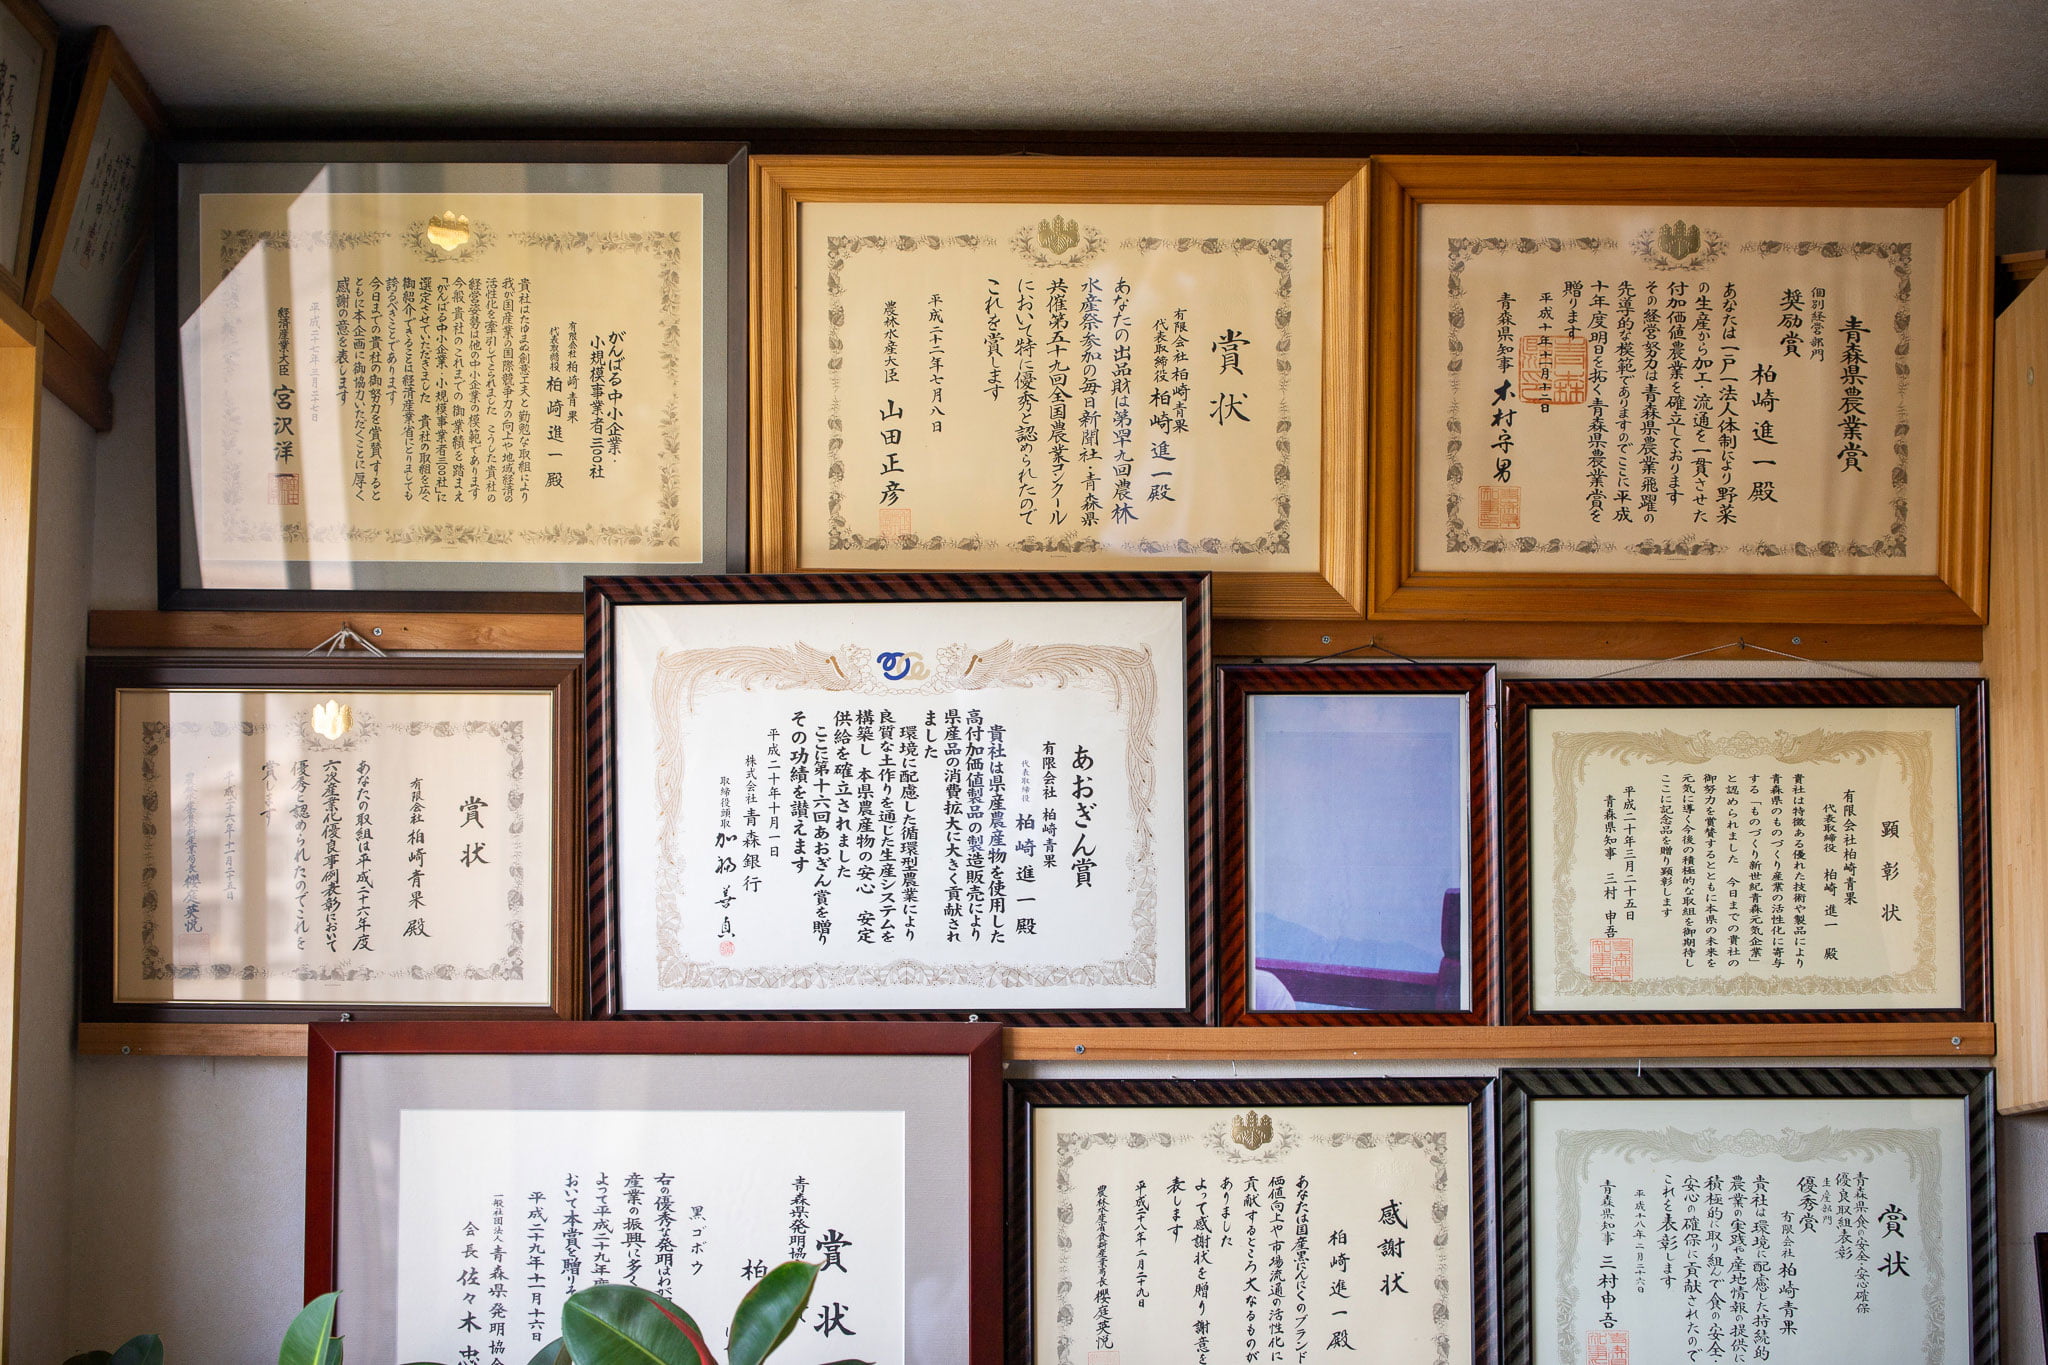 がんばる中小企業・
小規模事業者三〇〇社
有限会社柏崎青果
代表取締役 柏崎進一殿
貴社はたゆまぬ創意工夫と勤勉な取組により
我が国産業の国際競争力の向上や地域経済の
活性化を牽引してこられました こうした貴社の
経営姿勢は他の中小企業の模範であります
今般 貴社のこれまでの御業績を踏まえ
「がんばる中小企業・小規模事業者三〇〇社」に
選定させていただきました 貴社の取組を広く
御紹介できることは経済産業省にとりましても
誇るべきことであります
今日までの貴社の御努力を賞賛すると
ともに本企画に御協力いただくことに厚く
感謝の意を表します
平成二十七年三月二十七日
経済産業大臣 宮沢洋一
賞状
有限会社柏崎青果
代表取締役 柏崎進一殿
あなたの出品財は第四十九回農林
水産祭参加の毎日新聞社・青森県
共催第五十九回全国農業コンクール
において特に優秀と認められたので
これを賞します
平成二十二年七月八日
農林水産大臣 山田正彦
青森県農業賞
個別経営部門
奨励賞
柏崎進一殿
あなたは一戸一法人体制により野菜
の生産から加工・流通を一貫させた
付加価値農業を確立しております
その経営努力は青森県農業飛躍の
先導的な模範でありますのでここに平成
十年度明日を拓く青森県農業賞を
贈ります
平成十年十一月十二日
青森県知事 木村守男
賞状
有限会社柏崎青果殿
あなたの取組は平成二十六年度
六次産業化優良事例表彰において
優秀と認められたのでこれを
賞します
平成二十六年十一月二十五日
櫻庭英悦
あおぎん賞
有限会社 柏崎青果
代表取締役 柏崎進一殿
貴社は県産農産物を使用した
高付加価値製品の製造販売により
県産品の消費拡大に大きく貢献され
ました
環境に配慮した循環型農業により
良質な土作りを通じた生産システムを
構築し 本県農産物の安心 安定
供給を確立されました
ここに第十六回あおぎん賞を贈り
その功績を讃えます
平成二十年十月一日
株式会社 青森銀行
取締役頭取 加福善貞
顕彰状
有限会社柏崎青果
代表取締役 柏崎進一 殿
貴社は特徴ある優れた技術や製品により
青森県のものづくり産業の活性化に寄与
する「ものづくり新世紀青森元気企業」
と認められました 今日までの貴社の
御努力を賞賛するとともに本県の未来を
元気に導く今後の積極的な取組を御期待し
ここに記念品を贈り顕彰します
平成二十年三月二十五日
青森県知事 三村申吾
賞状
青森県発明協
黒ゴボウ
柏
右の優秀な発明はわが
産業の振興に多く
よって平成二十九年度
おいて本賞を贈り
平成二十九年十一月十六日
一般社団法人 青森県発明協会
会長 佐々木忠
感謝状
柏崎進一殿
あなたは国産黒にんにくのブランド
価値向上や市場流通の活性化に
貢献するところ大なるものが
ありました
よって感謝状を贈り謝意を
表します
平成二十八年二月二十九日
農林水産省食料産業局長 櫻庭英悦
賞状
青森県食の安全・安心確保
優良取組表彰
生産部門
優秀賞
有限会社柏崎青果
貴社は環境に配慮した持続的
農業の実践や産地情報の提供に
積極的に取り組んで食の安全・
安心の確保に貢献されたので
これを表彰します
平成十八年二月二十六日
青森県知事 三村申吾